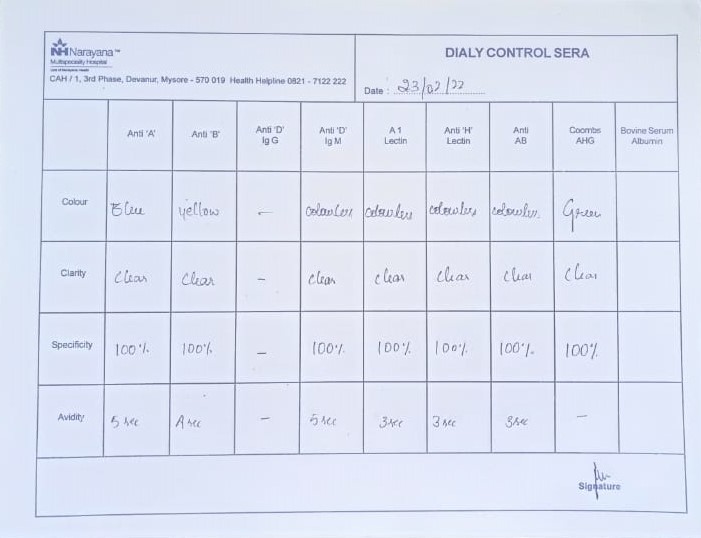 NH Narayana™
Multispecialty Hospital
DIALY CONTROL SERA
CAH / 1, 3rd Phase, Devanur, Mysore - 570 019 Health Helpline 0821 - 7122 222
Date : 23/02/22
Anti 'A' Anti 'B' Anti 'D' Ig G Anti 'D' Ig M A 1 Lectin Anti 'H' Lectin Anti AB Coombs AHG Bovine Serum Albumin
Colour Blue yellow - colourless colourless colourless colourless Green
Clarity Clear Clear - clear clear clear clear clear
Specificity 100% 100% - 100% 100% 100% 100% 100%
Avidity 5 sec 4 sec - 5 sec 3 sec 3 sec 3 sec -
Signature